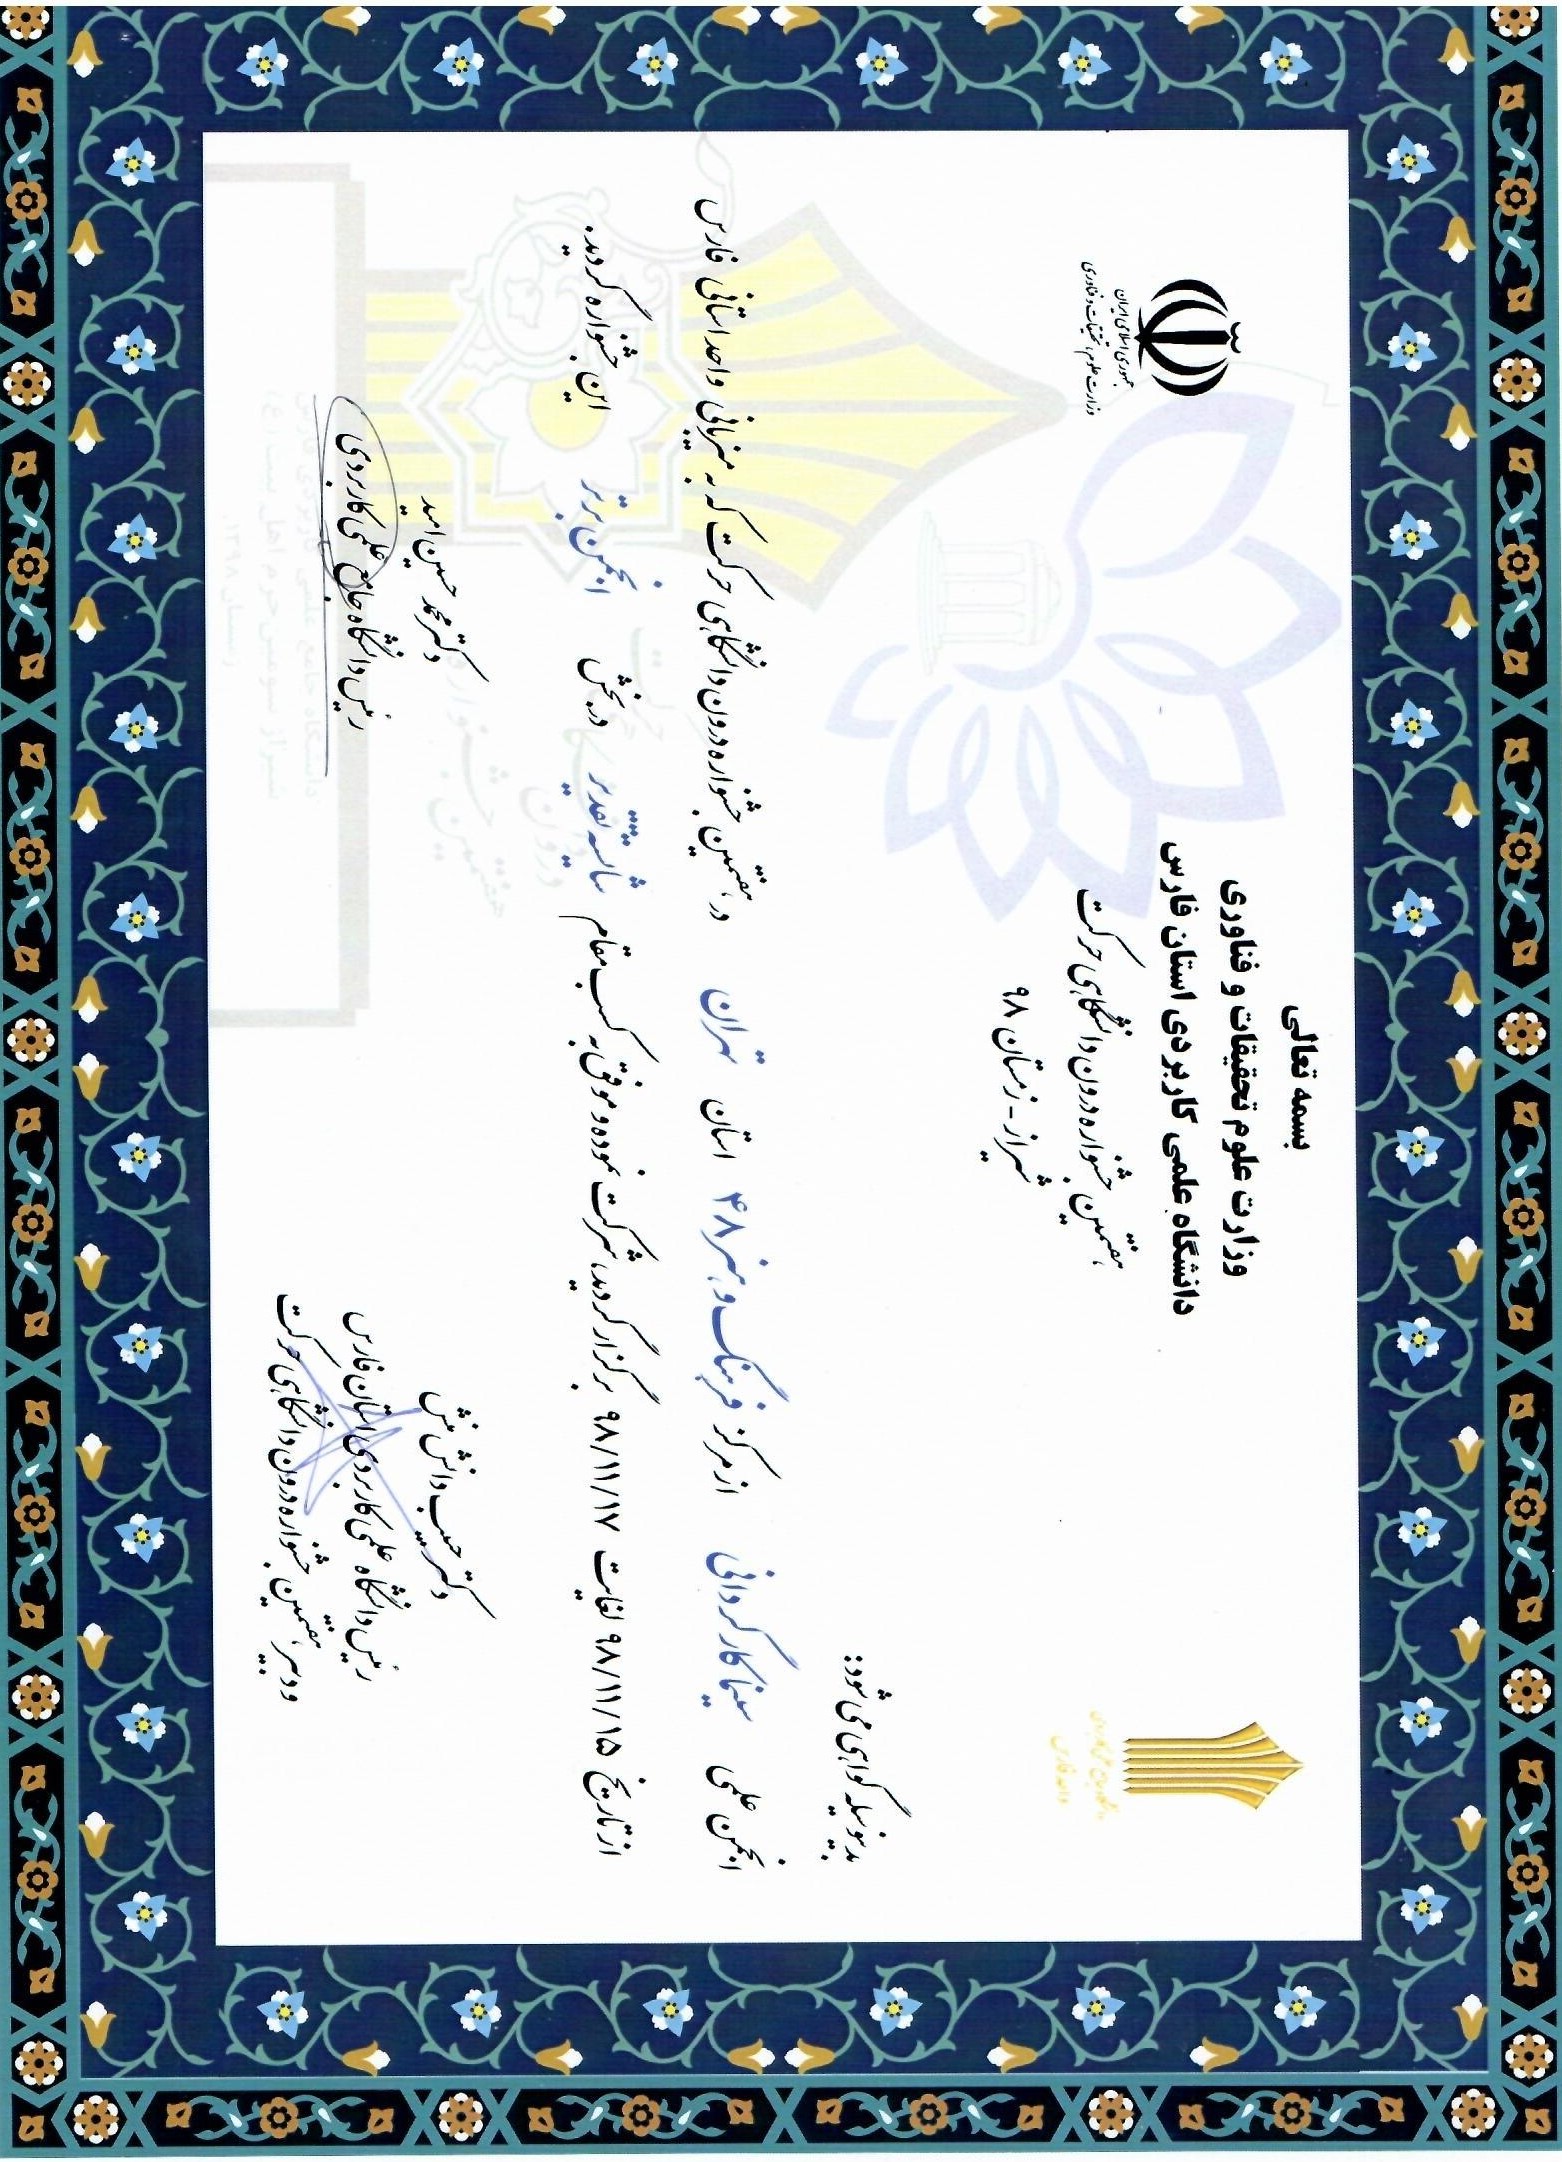 بسمه تعالی
وزارت علوم تحقیقات و فناوری
دانشگاه علمی کاربردی استان فارس
هفتمین جشنواره درون دانشگاهی حرکت
شیراز - زمستان ۹۸
جمهوری اسلامی ایران
وزارت علوم، تحقیقات و فناوری
بدینوسیله گواهی می شود:
انجمن علمی سینما کارگردانی از مرکز فرهنگ و هنر ۴۸ استان تهران در هفتمین جشنواره درون دانشگاهی حرکت که به میزبانی واحد استانی فارس
از تاریخ ۹۸/۱۱/۱۵ لغایت ۹۸/۱۱/۱۷ برگزار گردید، شرکت نموده و موفق به کسب مقام شایسته تقدیر در بخش انجمن برتر این جشنواره گردید.
دکتر حبیب دانش منش
رئیس دانشگاه علمی کاربردی استان فارس
و دبیر هفتمین جشنواره درون دانشگاهی حرکت
دکتر محمد حسین امید
رئیس دانشگاه جامع علمی کاربردی
هفتمین جشنواره
درون دانشگاهی
حرکت
دانشگاه جامع علمی کاربردی فارس
شیراز سومین حرم اهل بیت (ع)
زمستان ۱۳۹۸